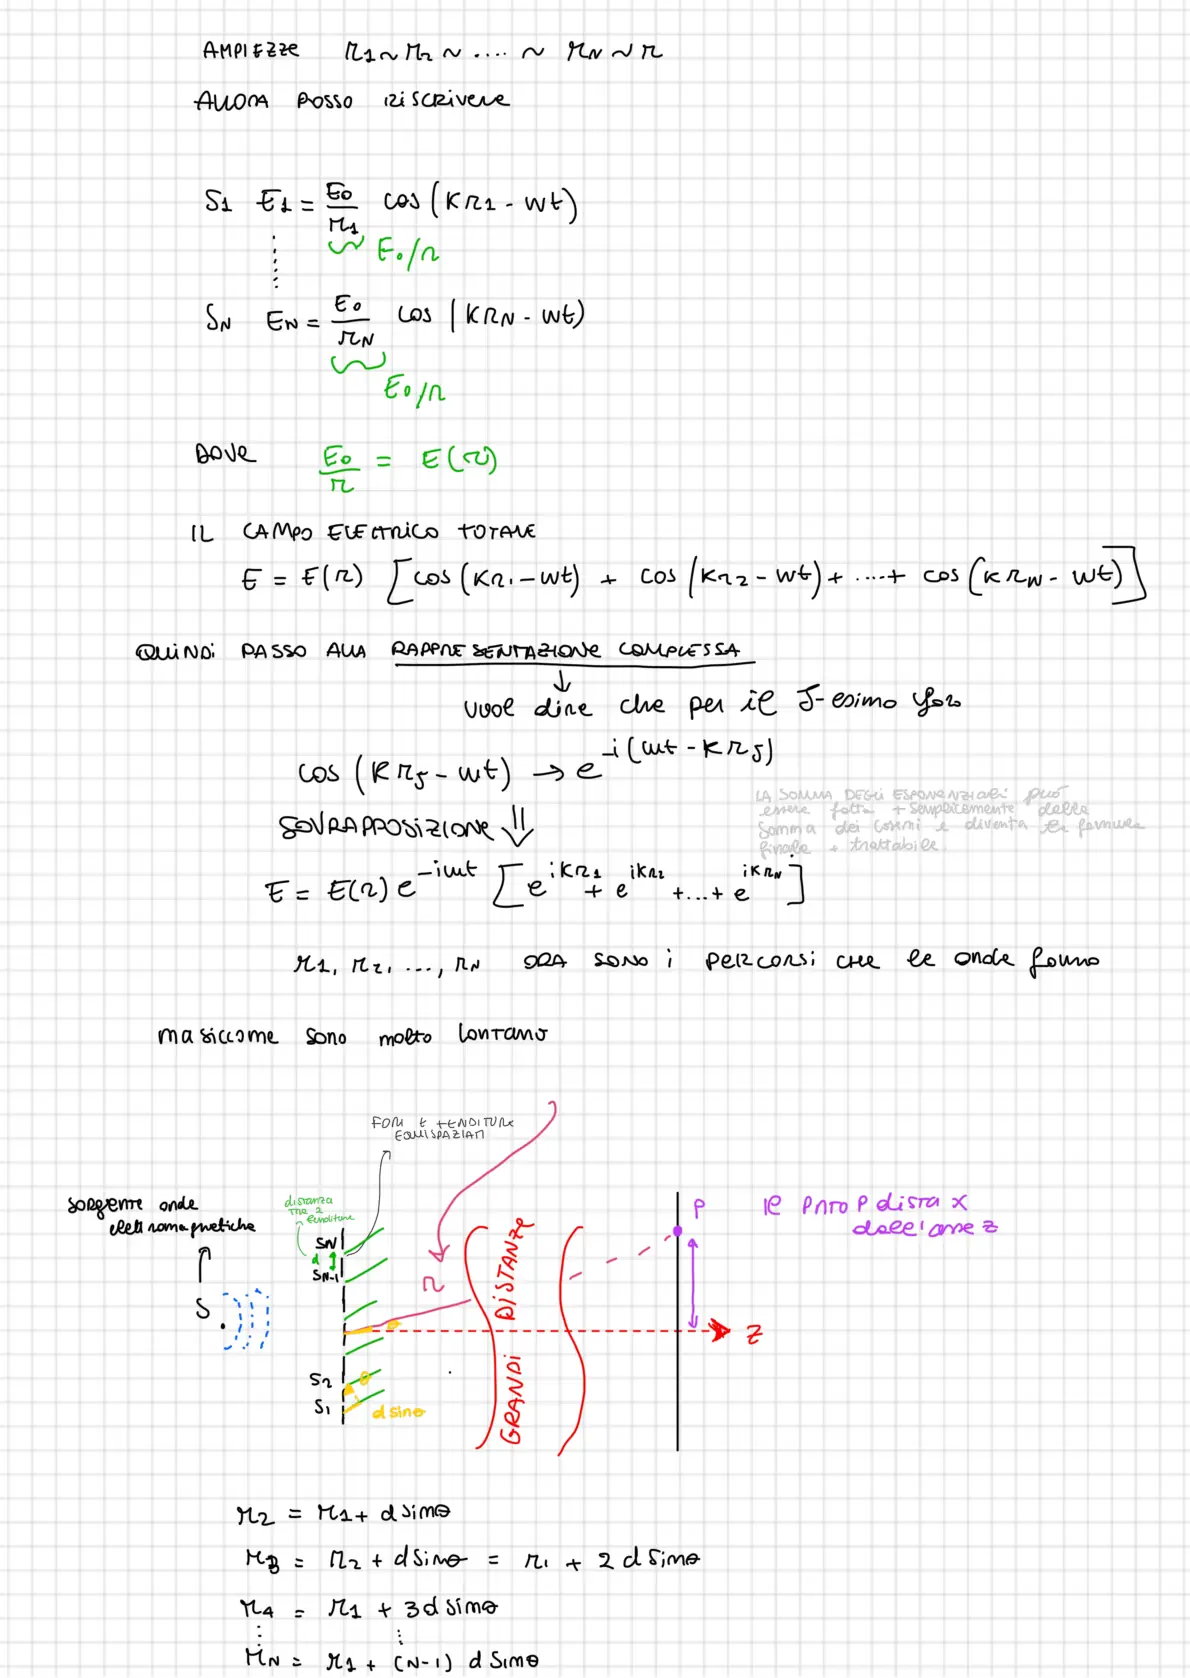 AMPIEZZE r1 ~ r2 ~ .... ~ rN ~ r
ALLORA POSSO RISCRIVERE
S1 E1 = E0/r1 cos(kr1 - wt)
E0/r
SN EN = E0/rN cos(krN - wt)
E0/r
DOVE E0/r = E(r)
IL CAMPO ELECTRICO TOTALE
E = E(r) [cos(kr1 - wt) + cos(kr2 - wt) + ....+ cos(krN - wt)]
QUINDI PASSO ALLA RAPPRESENTAZIONE COMPLESSA
↓
VUOL DIRE CHE PER il J-esimo foro
cos(krJ - wt) → e^-i(wt - krJ)
LA SOMMA DEGLI ESPONENZIALI può
essere fatta + semplicemente della
somma dei coseni e diventa la formula
finale + trattabile
SOVRAPPOSIZIONE ⇓
E = E(r) e^-iwt [e^ikr1 + e^ikr2 +...+ e^ikrN]
r1, r2, ..., rN ORA SONO i PERCORSI CHE le onde fanno
ma siccome sono molto lontano
FORI E FENDITURE
EQUISPAZIATI
sorgente onde
elettromagnetiche
distanza
tra 2
fenditure
SN
d
SN-1
S
r
GRANDI DISTANZE
P
il PNTO P dista x
dall'asse z
z
S2
θ
S1
d sinθ
r2 = r1 + d sinθ
r3 = r2 + d sinθ = r1 + 2 d sinθ
r4 = r1 + 3d sinθ
rN = r1 + (N-1) d sinθ